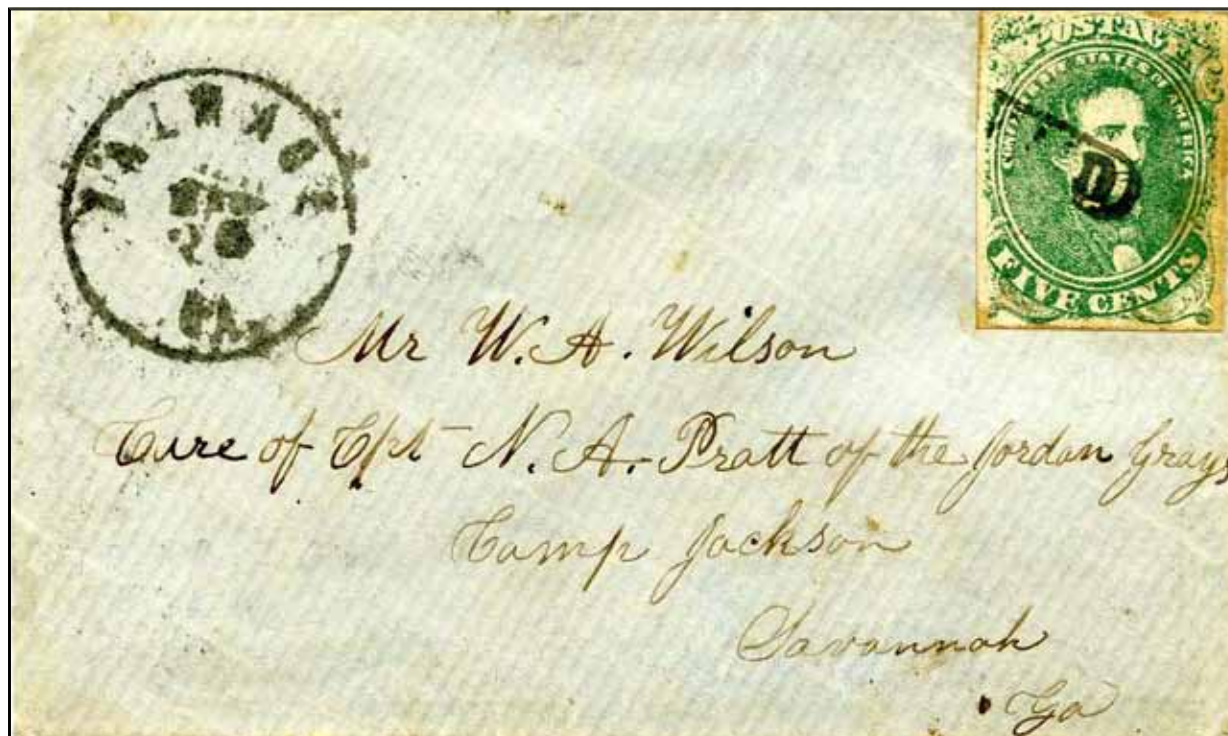 POSTAGE
CONFEDERATE STATES OF AMERICA
FIVE CENTS
Mr W. A. Wilson
Care of Cpt N. A. Pratt of the Jordan Grays
Camp Jackson
Savannah
Ga